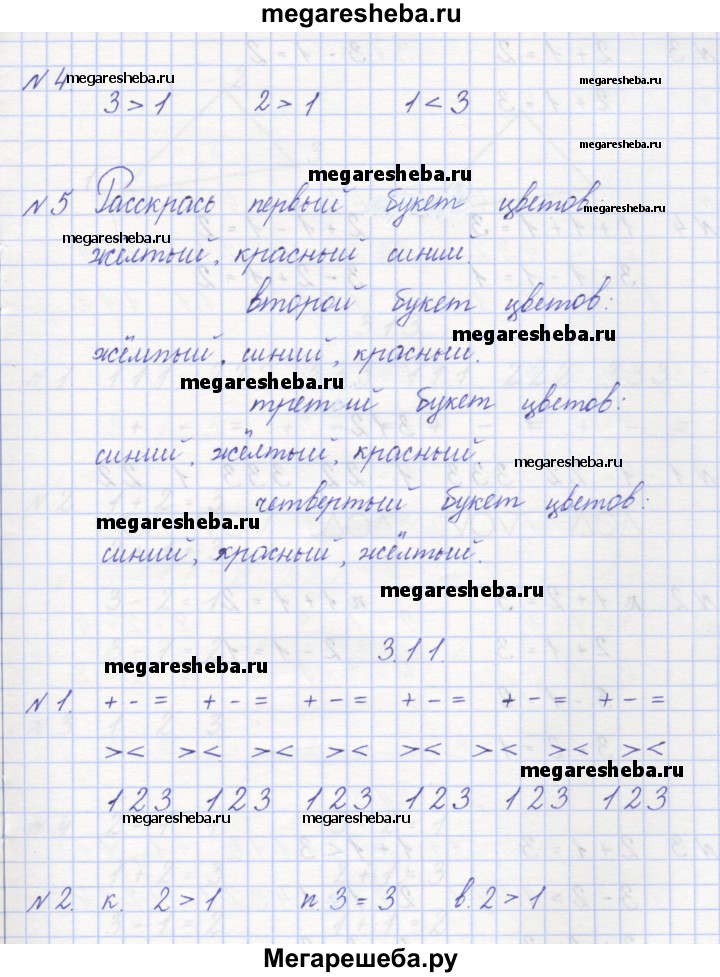 megaresheba.ru
№4 megaresheba.ru megaresheba.ru
3 > 1 2 > 1 1 < 3
megaresheba.ru
megaresheba.ru
№5 Расскрась первый букет цветов: megaresheba.ru
megaresheba.ru
желтый, красный синий.
второй букет цветов:
megaresheba.ru
жёлтый, синий, красный.
megaresheba.ru
третий букет цветов:
синий, жёлтый, красный. megaresheba.ru
четвертый букет цветов:
megaresheba.ru
синий, красный, жёлтый.
megaresheba.ru
3.11.
megaresheba.ru
№1. + - = + - = + - = + - = + - = + - =
> < > < > < > < > < > < > < > <
megaresheba.ru
1 2 3 1 2 3 1 2 3 1 2 3 1 2 3 1 2 3
megaresheba.ru megaresheba.ru
№2. к. 2 > 1 п. 3 = 3 в. 2 > 1
Мегарешеба.ру